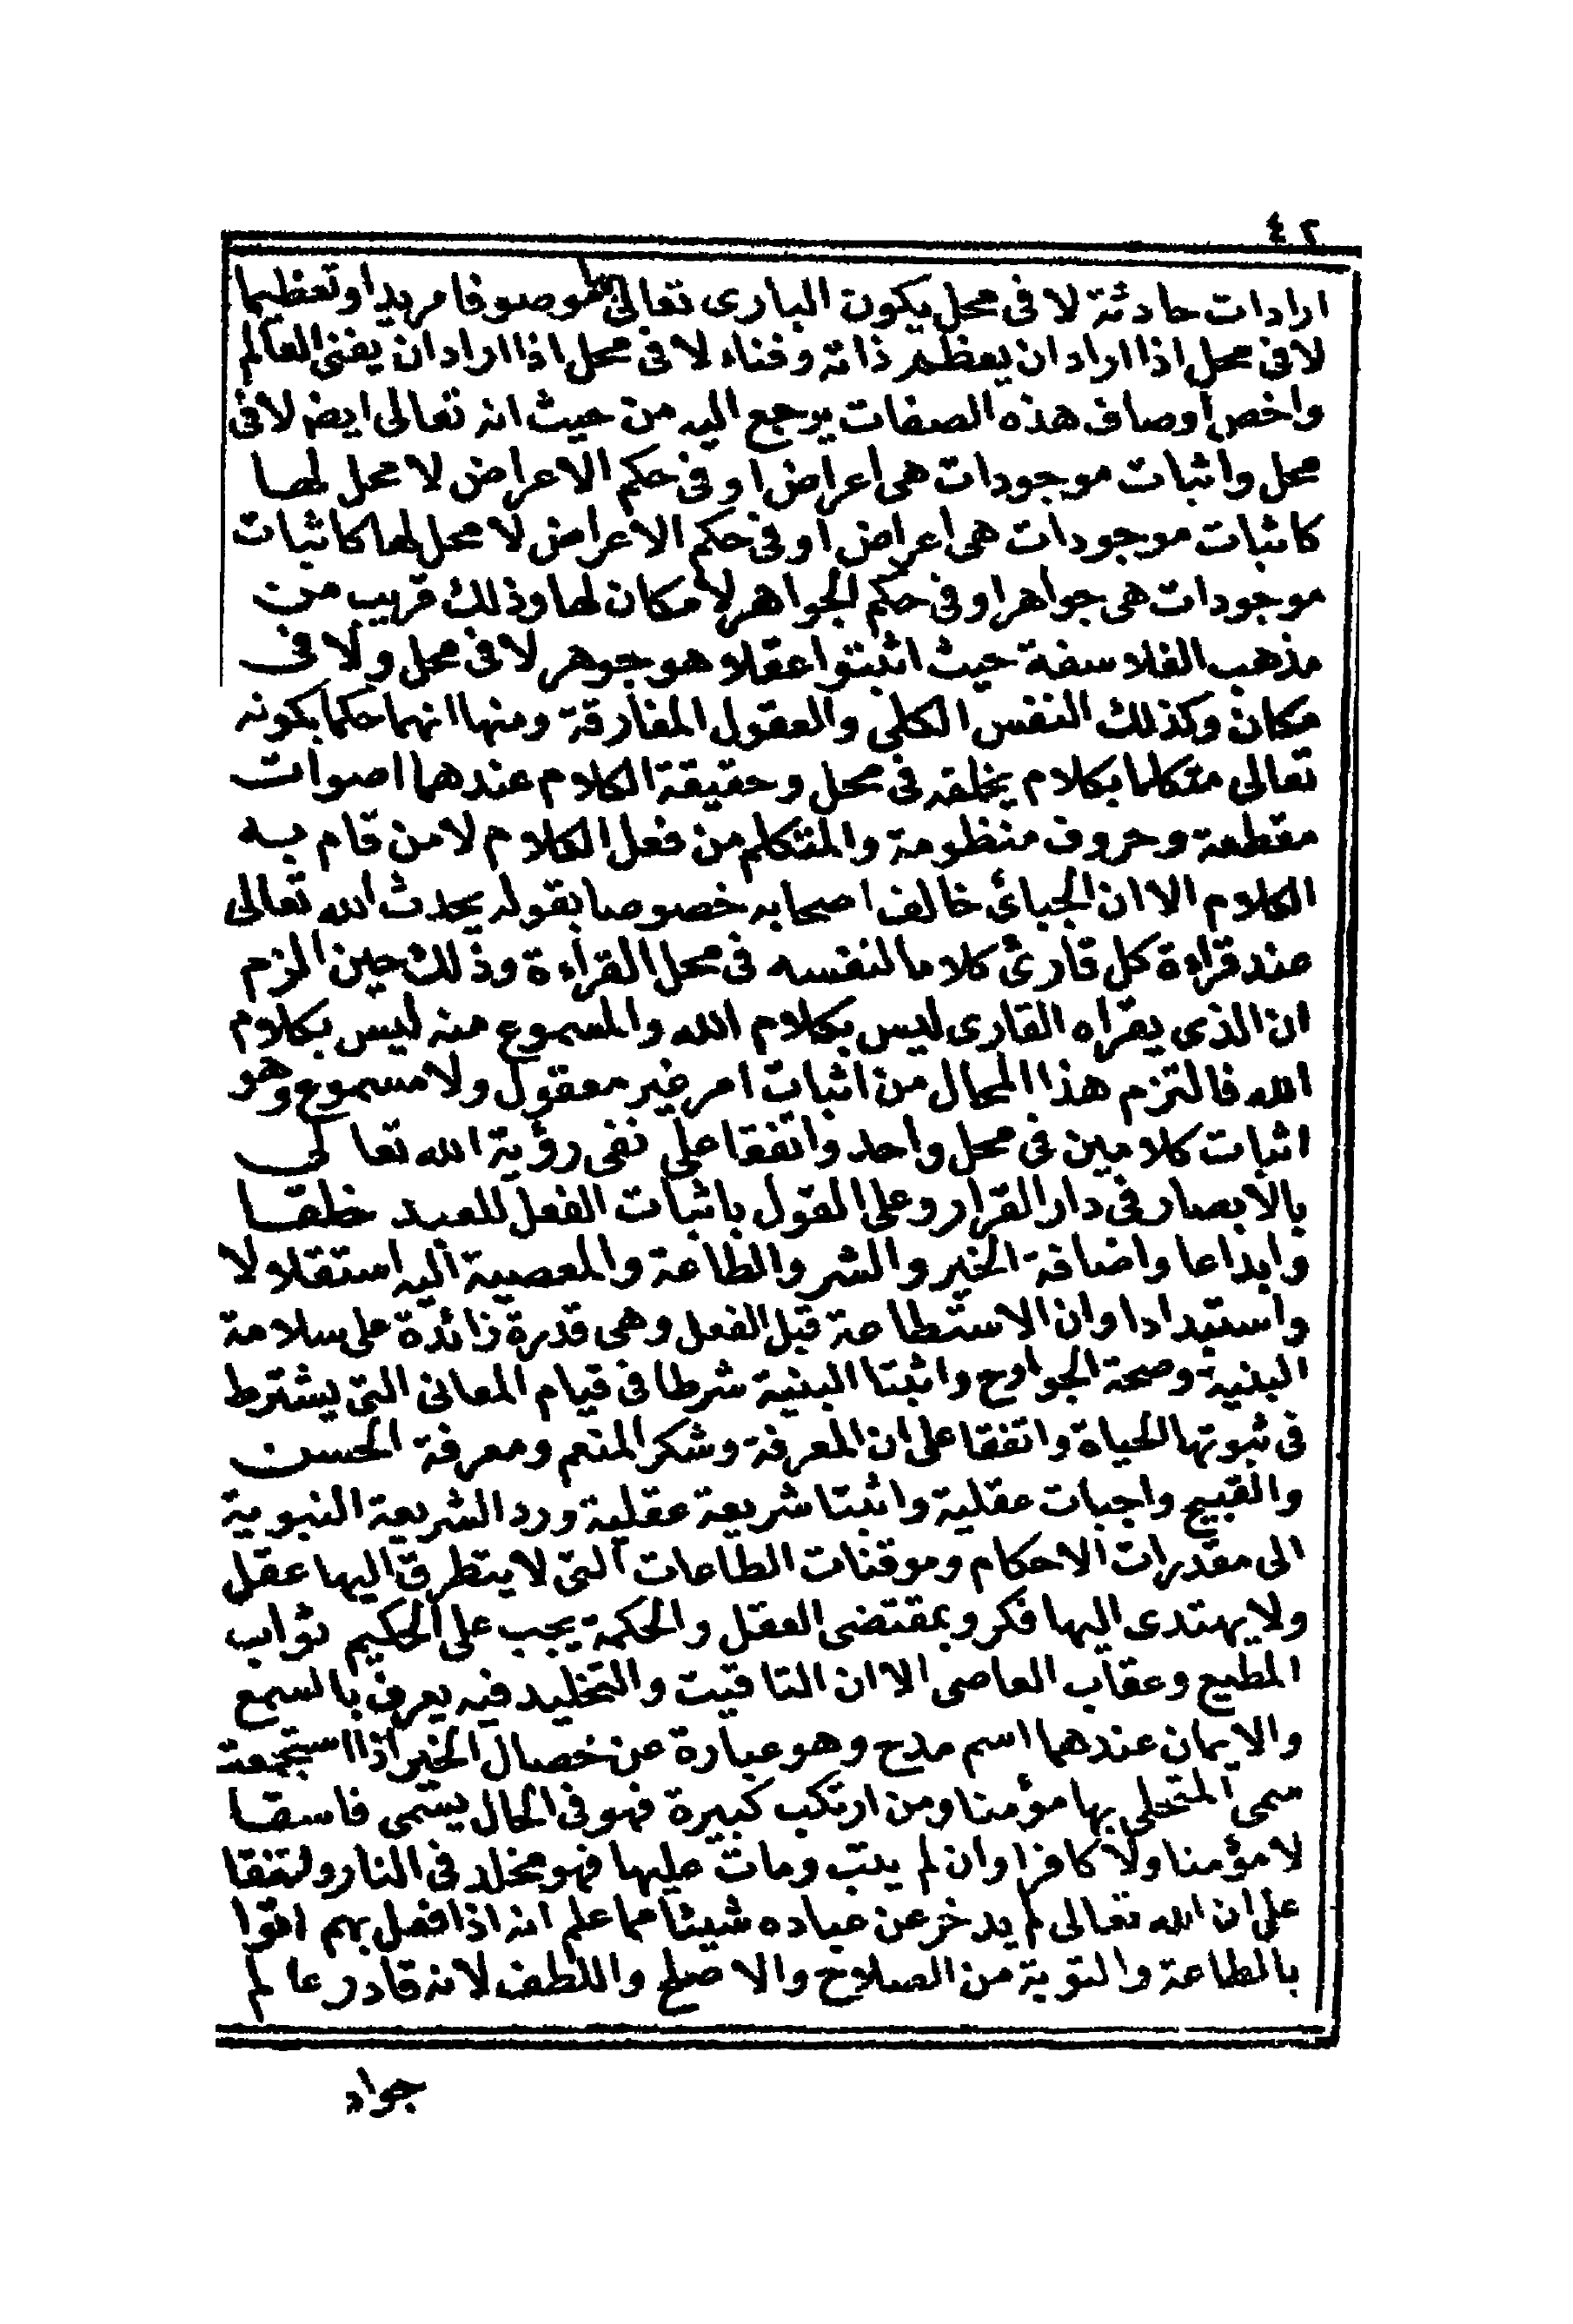 ٤٢
ارادات حادثة لا فى محل يكون البارى تعالى بها موصوفا مريدا وتعظيما
لا فى محل اذا اراد ان يعظم ذاته وفناء لا فى محل اذا اراد ان يفنى العالم
واخص اوصاف هذه الصفات يرجع اليه من حيث انه تعالى ايضا لا فى
محل واثبات موجودات هى اعراض او فى حكم الاعراض لا محل لها
كاثبات موجودات هى اعراض او فى حكم الاعراض لا محل لها كاثبات
موجودات هى جواهر او فى حكم الجواهر لا مكان لها وذلك قريب من
مذهب الفلاسفة حيث اثبتوا عقلا هو جوهر لا فى محل ولا فى
مكان وكذلك النفس الكلى والعقول المفارقة ومنها انهما حكما بكونه
تعالى متكلما بكلام يخلقه فى محل وحقيقة الكلام عندهما اصوات
مقطعة وحروف منظومة والمتكلم من فعل الكلام لا من قام به
الكلام الا ان الجبائى خالف اصحابه خصوصا بقوله يحدث الله تعالى
عند قراءة كل قارئ كلاما لنفسه فى محل القراءة وذلك حين الزم
ان الذى يقراه القارى ليس بكلام الله والمسموع منه ليس بكلام
الله فالتزم هذا المحال من اثبات امر غير معقول ولا مسموع وهو
اثبات كلامين فى محل واحد واتفقا على نفى رؤية الله تعالى
بالابصار فى دار القرار وعلى القول باثبات الفعل للعبد خلقا
وابداعا واضافة الخير والشر والطاعة والمعصية اليه استقلالا
واستبدادا وان الاستطاعة قبل الفعل وهى قدرة زائدة على سلامة
البنية وصحة الجوارح واثبتا البنية شرطا فى قيام المعانى التى يشترط
فى ثبوتها الحياة واتفقا على ان المعرفة وشكر المنعم ومعرفة الحسن
والقبيح واجبات عقلية واثبتا شريعة عقلية ورد الشريعة النبوية
الى مقدرات الاحكام وموقتات الطاعات التى لا يتطرق اليها عقل
ولا يهتدى اليها فكر وبمقتضى العقل والحكمة يجب على الحكيم ثواب
المطيع وعقاب العاصى الا ان التاقيت والتخليد فيه يعرف بالسمع
والايمان عندهما اسم مدح وهو عبارة عن خصال الخير اذا استجمعت
سمى المتحلى بها مؤمنا ومن ارتكب كبيرة فهو فى الحال يسمى فاسقا
لا مؤمنا ولا كافرا وان لم يتب ومات عليها فهو مخلد فى النار واتفقا
على ان الله تعالى لم يدخر عن عباده شيئا مما علم انه اذا فعل بهم اتوا
بالطاعة والتوبة من الصلاح والاصلح واللطف لانه قادر عالم
جواد